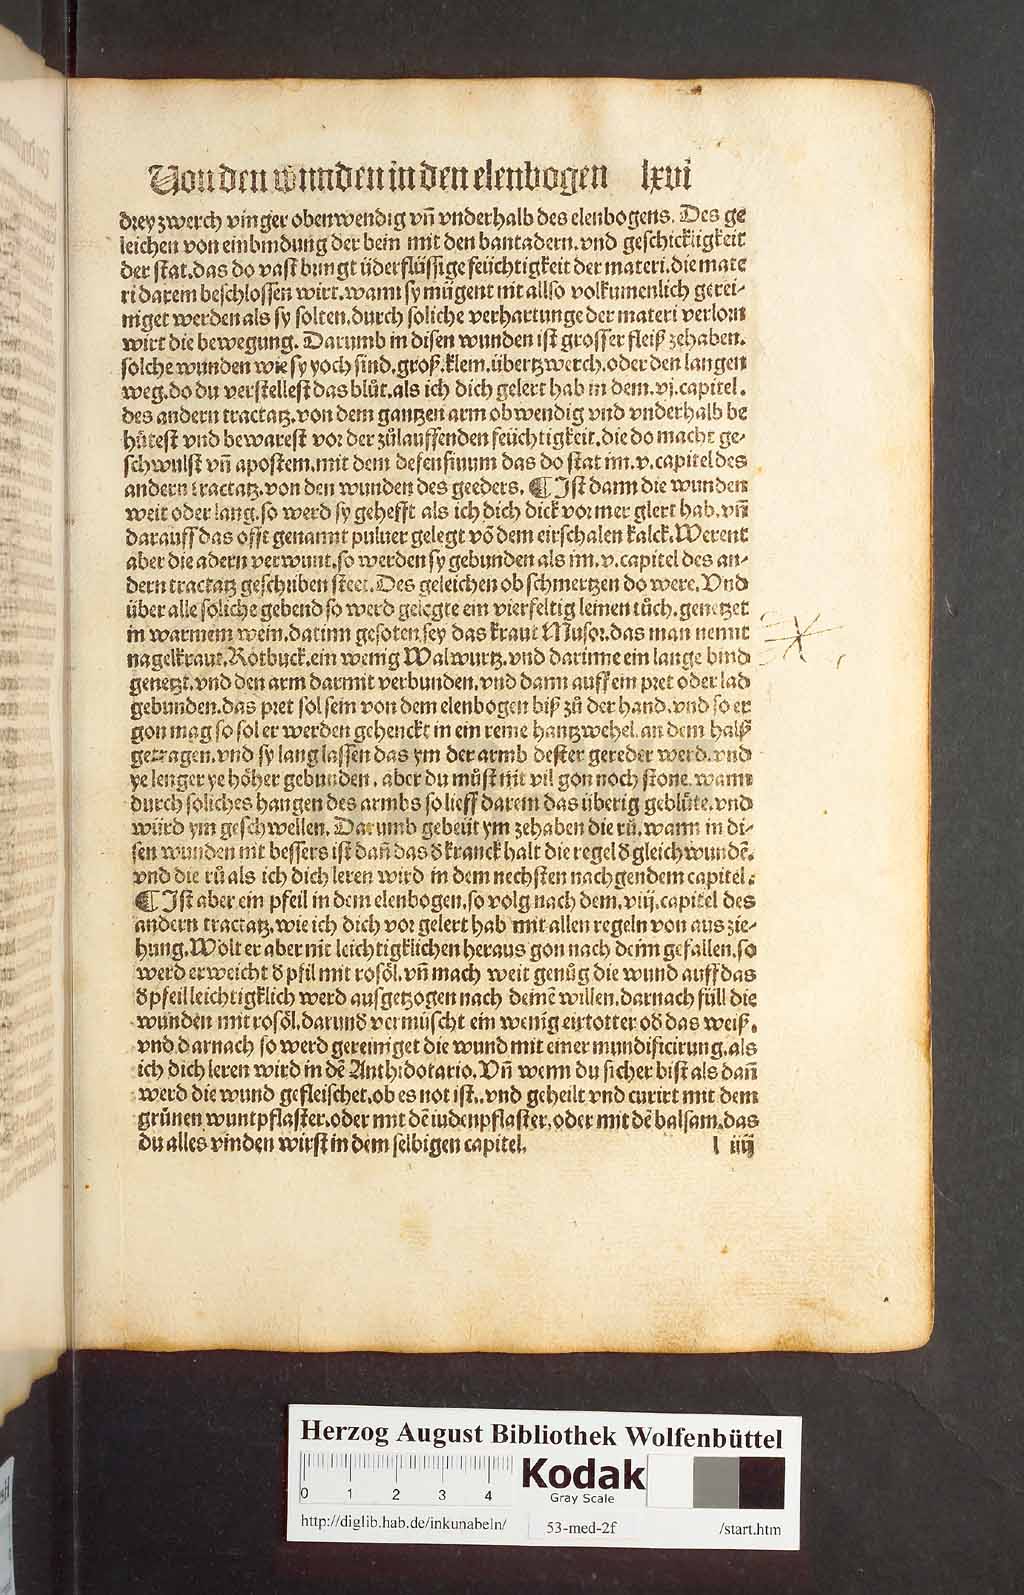 Von den wunden in den elenbogen lxvi
drey zwerch vinger obenwendig vñ vnderhalb des elenbogens. Des ge
leichen von einbindung der bein mit den bantadern. vnd geschicktigkeit
der stat. das do vast bringt überflüssige feüchtigkeit der materi. die mate
ri darein beschlossen wirt. wann sy mügent nit allso volkumenlich gerei⸗
niget werden als sy solten. durch soliche verhartunge der materi verlorn
wirt die bewegung. Darumb in disen wunden ist grosser fleiß zehaben.
solche wunden wie sy yoch sind. groß. klein. übertzwerch. oder den langen
weg. do du verstellest das blůt. als ich dich gelert hab in dem. vj. capitel.
des andern tractatz. von dem gantzen arm obwendig vnd vnderhalb be
hůtest vnd bewarest vor der zůlauffenden feüchtigkeit. die do macht ge⸗
schwulst vñ apostem. mit dem defensiuum das do stat im. v. capitel des
andern tractatz. von den wunden des geeders. ¶ Ist dann die wunden
weit oder lang. so werd sy gehefft als ich dich dick vormer glert hab. vñ
darauff das offt genannt puluer gelegt võ dem eirschalen kalck. Werent
aber die adern verwunt. so werden sy gebunden als im. v. capitel des an⸗
dern tractatz geschriben steet. Des geleichen ob schmertzen do were. Vnd
über alle soliche gebend so werd gelegte ein vierfeltig leinen tůch. genetzet
in warmem wein. darinn gesoten sey das kraut Musor. das man nennt
nagelkraut. Rotbuck. ein wenig Walwurtz. vnd darinne ein lange bind
genetzt. vnd den arm darmit verbunden. vnd dann auff ein pret oder lad
gebunden. das pret sol sein von dem elenbogen biß zů der hand. vnd so er
gon mag so sol er werden gehenckt in ein reine hantzwehel. an dem halß
getragen. vnd sy lang lassen das ym der armb dester gereder werd. vnd
ye lenger ye höher gebunden. aber du můst nit vil gon noch stone. wann
durch soliches hangen des armbs so lieff darein das überig geblüte. vnd
würd ym geschwellen. Darumb gebeüt ym zehaben die rů. wann in di⸗
sen wunden nit bessers ist dañ das d̕ kranck halt die regel d̕ gleich wundẽ.
vnd die rů als ich dich leren wird in dem nechsten nachgendem capitel.
¶ Ist aber ein pfeil in dem elenbogen. so volg nach dem. viij. capitel des
andern tractatz. wie ich dich vor gelert hab mit allen regeln von aus zie⸗
hung. Wolt er aber nit leichtigklichen heraus gon nach deim gefallen. so
werd erweicht d̕ pfil mit rosöl. vñ mach weit genůg die wund auff das
d̕ pfeil leichtigklich werd ausgetzogen nach deinẽ willen. darnach füll die
wunden mit rosöl. darund̕ vermüscht ein wenig eirtotter od̕ das weiß.
vnd darnach so werd gereiniget die wund mit einer mundificirung. als
ich dich leren wird in dẽ Anthidotario. Vñ wenn du sicher bist als dañ
werd die wund gefleischet. ob es not ist. vnd geheilt vnd curirt mit dem
grünen wuntpflaster. oder mit dẽ iudenpflaster. oder mit dẽ balsam. das
du alles vinden wirst in dem selbigen capitel. l iiij
Herzog August Bibliothek Wolfenbüttel
0 1 2 3 4
Kodak
Gray Scale
http://diglib.hab.de/inkunabeln/ 53-med-2f /start.htm